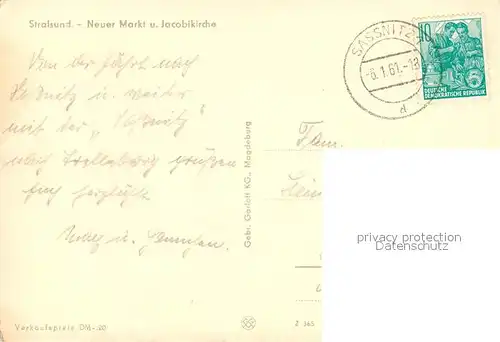 Stralsund. - Neuer Markt u. Jacobikirche
Von der Fahrt nach
Saßnitz u. weiter
mit der „Saßnitz"
nach Trelleborg grüßen
Euch herzlichst
u.
Fam.
Gebr. Garloff KG., Magdeburg
SASSNITZ
-6.1.61.-18
d
10
DEUTSCHE
DEMOKRATISCHE REPUBLIK
privacy protection
Datenschutz
Verkaufspreis DM -.20
Z 365